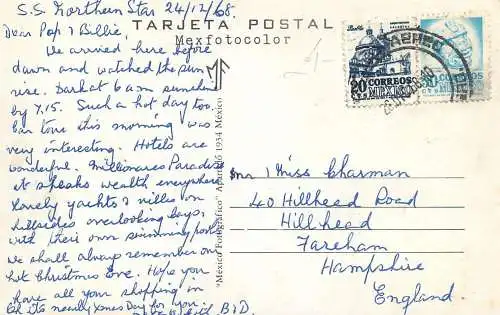 S.S. Northern Star 24/12/68.
TARJETA POSTAL
Mexfotocolor
Dear Pop & Billie,
We arrived here before
dawn and watched the sun
rise. Dark at 6 am sunrise
by 7.15. Such a hot day too.
Our tour this morning was
very interesting. Hotels are
wonderful. Millionaires Paradise
it speaks wealth everywhere
lovely yachts & villas on
hillsides overlooking bays,
with their own swimming pools
we shall always remember our
hot Christmas Eve. Hope you
have all your shopping in
as it's nearly Xmas Day for you.
"México Fotográfico" Apartado 1934 México
20
CORREOS
MEXICO
CORREOS
Mr & Miss Charman
40 Hillhead Road
Hillhead
Fareham
Hampshire
England.